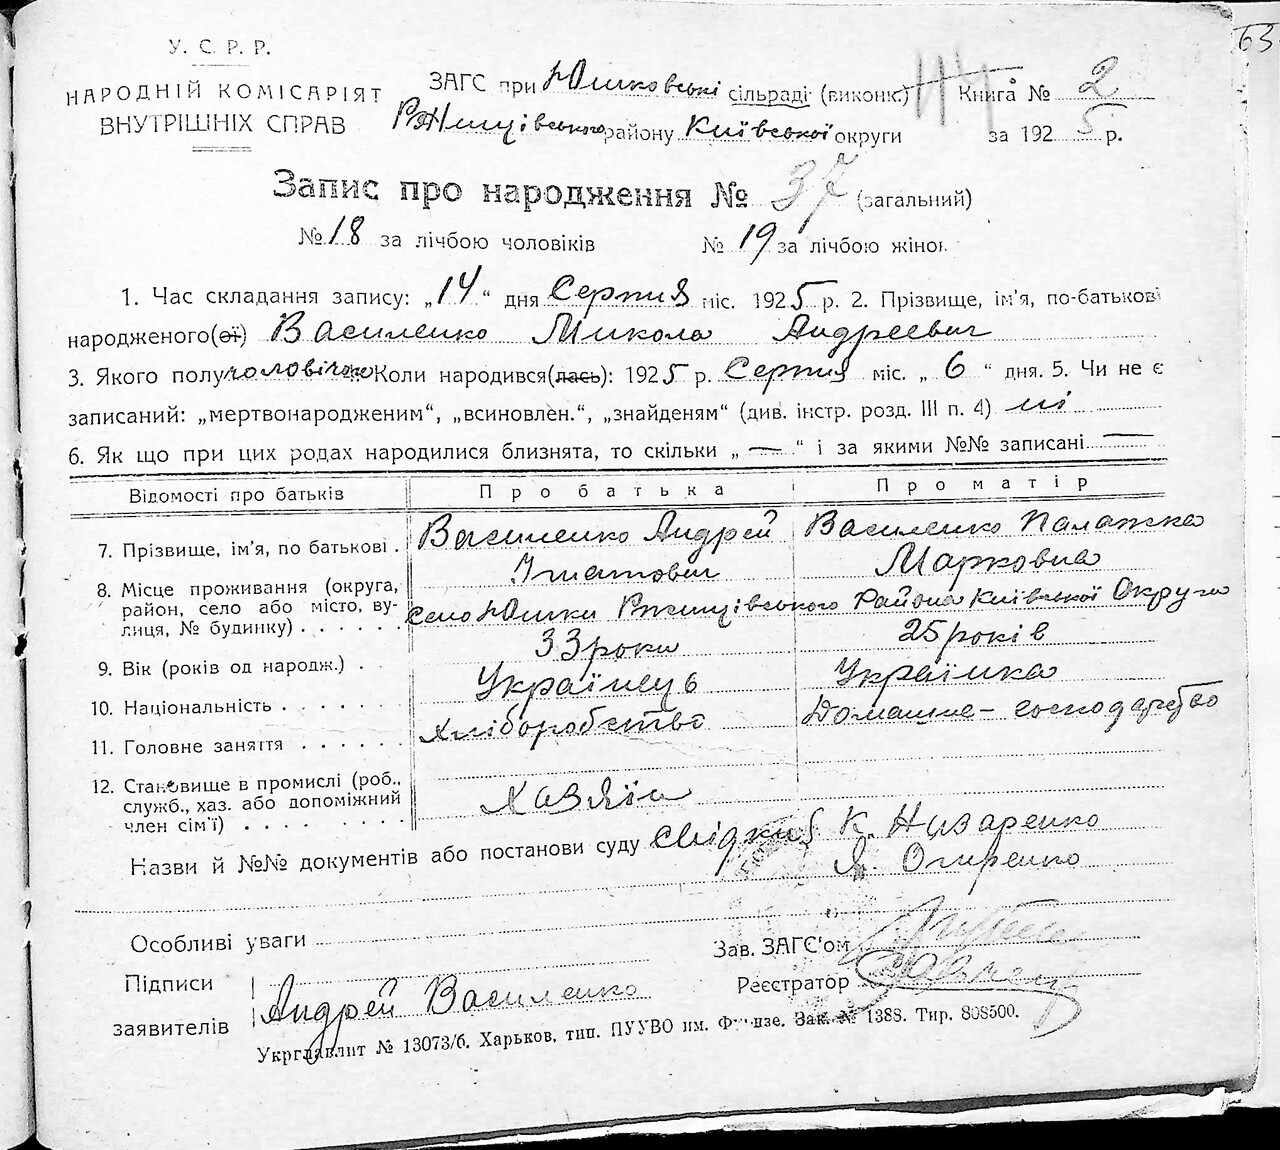 63
У. С. Р. Р.
НАРОДНІЙ КОМІСАРІЯТ
ВНУТРІШНІХ СПРАВ
ЗАГС при Юшковські сільраді (виконк.) Книга № 2
Ржищівського району Київської округи за 1925 р.
Запис про народження № 37 (загальний)
№ 18 за лічбою чоловіків № 19 за лічбою жінок
1. Час складання запису: „14“ дня Серпня міс. 1925 р. 2. Прізвище, ім'я, по-батькові
народженого(ої) Василенко Микола Андреевич
3. Якого полу чоловічого Коли народився(лась): 1925 р. Серпня міс. „ 6 “ дня. 5. Чи не є
записаний: „мертвонародженим“, „всиновлен.“, „знайденям“ (див. інстр. розд. III п. 4) ні
6. Як що при цих родах народилися близнята, то скільки „ — “ і за якими №№ записані —
Відомості про батьків Про батька Про матір
7. Прізвище, ім'я, по батькові . Василенко Андрей Василенко Палажка
Игнатович Марковна
8. Місце проживання (округа,
район, село або місто, ву-
лиця, № будинку) . . . . . . село Юшки Ржищівського Района Київської Округи
9. Вік (років од народж.) . 33 роки 25 років
10. Національність . . . . . . . Українець Українка
11. Головне заняття . . . . . . Хліборобство Домашнє-господарство
12. Становище в промислі (роб.,
служб., хаз. або допоміжний
член сім'ї) . . . . . . . . Хазяїн
Назви й №№ документів або постанови суду свідки К. Назаренко
Я. Огиренко
Особливі уваги
Зав. ЗАГС'ом
Підписи
заявителів Андрей Василенко
Реєстратор
Укрглавлит № 13073/б. Харьков, тип. ПУУВО им. Фрунзе. Зак. № 1388. Тир. 808500.